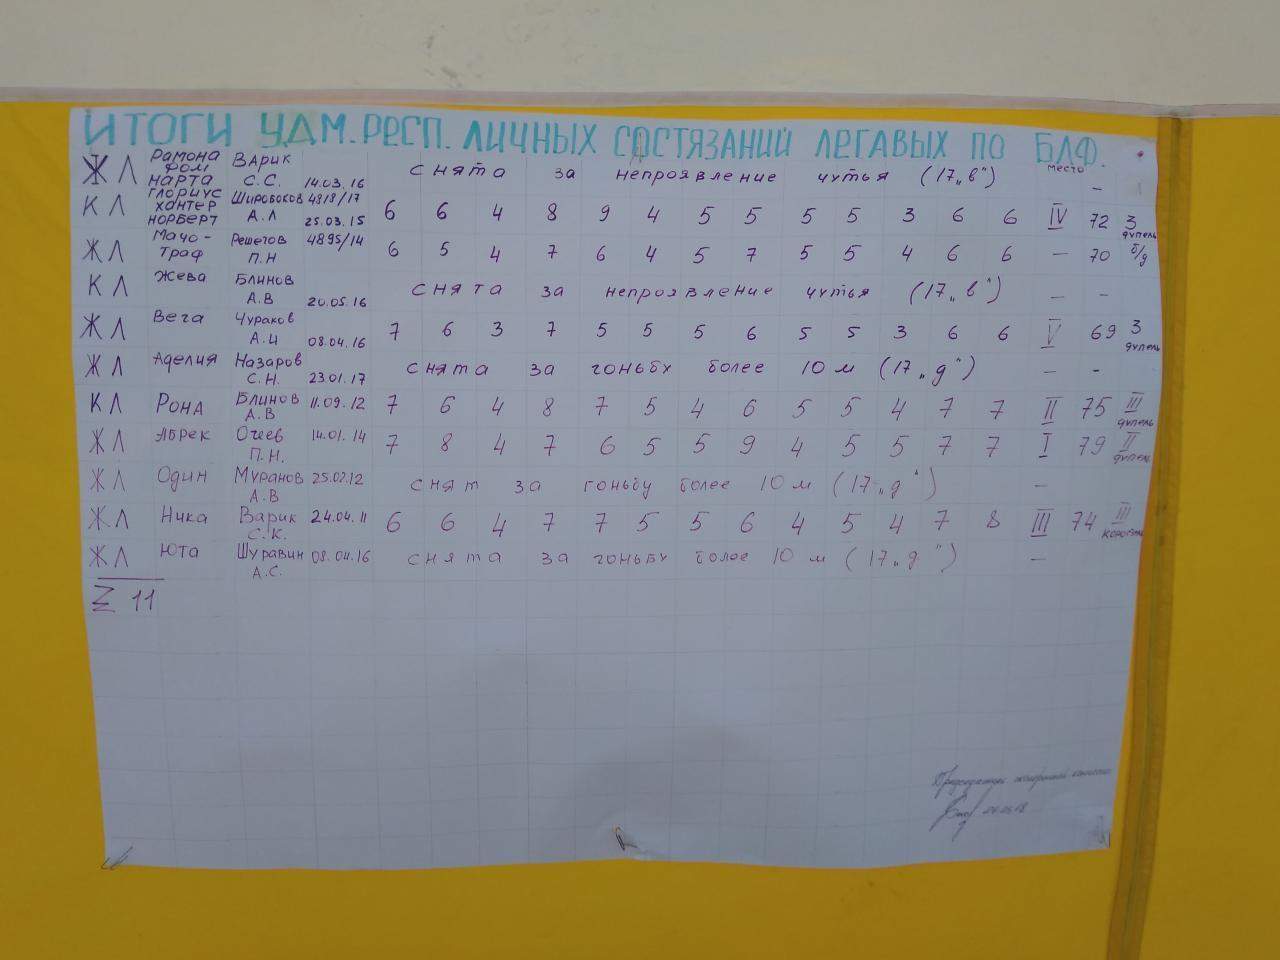 ИТОГИ УДМ. РЕСП. ЛИЧНЫХ СОСТЯЗАНИЙ ЛЕГАВЫХ ПО БЛФ.
место
ЖЛ Рамона фом Нарта Варик С.С. 14.03.16 снята за непроявление чутья (17 „в") –
КЛ Глориус Хантер Норберт Широбоков А.Л 4818/17 25.03.15 6 6 4 8 9 4 5 5 5 5 3 6 6 IV 72 3 дупель
ЖЛ Мачо-Траф Решетов П.Н 4895/14 6 5 4 7 6 4 5 7 5 5 4 6 6 – 70 б/д
КЛ Жева Блинов А.В 20.05.16 снята за непроявление чутья (17 „в") – –
ЖЛ Вега Чураков А.И 08.04.16 7 6 3 7 5 5 5 6 5 5 3 6 6 V 69 3 дупель
ЖЛ Аделия Назаров С.Н. 23.01.17 снята за гоньбу более 10 м (17 „д") – –
КЛ Рона Блинов А.В 11.09.12 7 6 4 8 7 5 4 6 5 5 4 7 7 II 75 III дупель
ЖЛ Абрек Очеев П.Н. 14.01.14 7 8 4 7 6 5 5 9 4 5 5 7 7 I 79 II дупель
ЖЛ Один Муранов А.В 25.02.12 снят за гоньбу более 10 м (17 „д") –
ЖЛ Ника Варик С.К. 24.04.11 6 6 4 7 7 5 5 6 4 5 4 7 8 III 74 III
ЖЛ Юта Шуравин А.С. 08.04.16 снята за гоньбу более 10 м (17 „д") –
Σ 11
Председатель экспертной комиссии